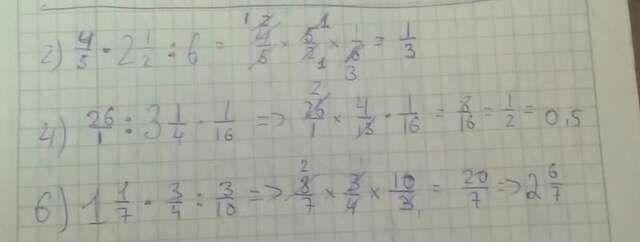 2) 4/5 · 2 1/2 : 6 = 4/5 × 5/2 × 1/6 = 1/3
4) 26/1 : 3 1/4 · 1/16 => 26/1 × 4/13 · 1/16 = 8/16 = 1/2 = 0,5
6) 1 1/7 · 3/4 : 3/10 => 8/7 × 3/4 × 10/3 = 20/7 => 2 6/7